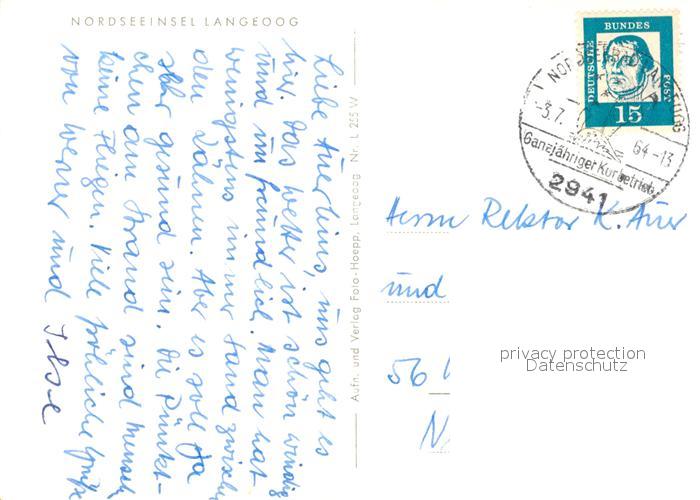 NORDSEEINSEL LANGEOOG
Liebe Auerleins, uns geht es
hier. Das Wetter ist schön windig
und unfreundlich. Man hat
wenigstens immer Sand zwischen
den Zähnen. Aber es soll ja
sehr gesund sein. Die Pünkt-
chen am Strand sind Mensch,
keine Fliegen. Viele fröhliche Grüße
von Werner und Ilse
Aufn. und Verlag Foto-Hoepp, Langeoog Nr. L 255 W
DEUTSCHE BUNDES POST
15
-3.7. 64-13
Ganzjähriger Kurbetrieb
2941
Herrn Rektor K. Auer
und
56
privacy protection
Datenschutz